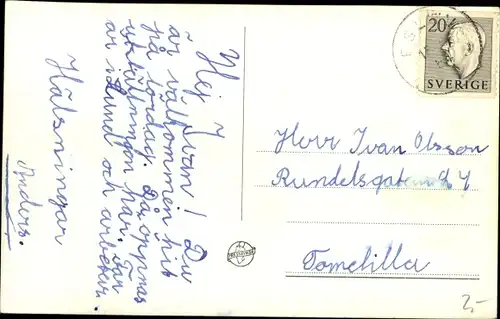 Hej Ivan! Du
är välkommen hit
på lördag. Då öppnas
utställningen här. Far
är i Lund och arbetar.
Hälsningar
Anders.
20
SVERIGE
Herr Ivan Olsson
Rundelsgatan
Tomelilla
2,-